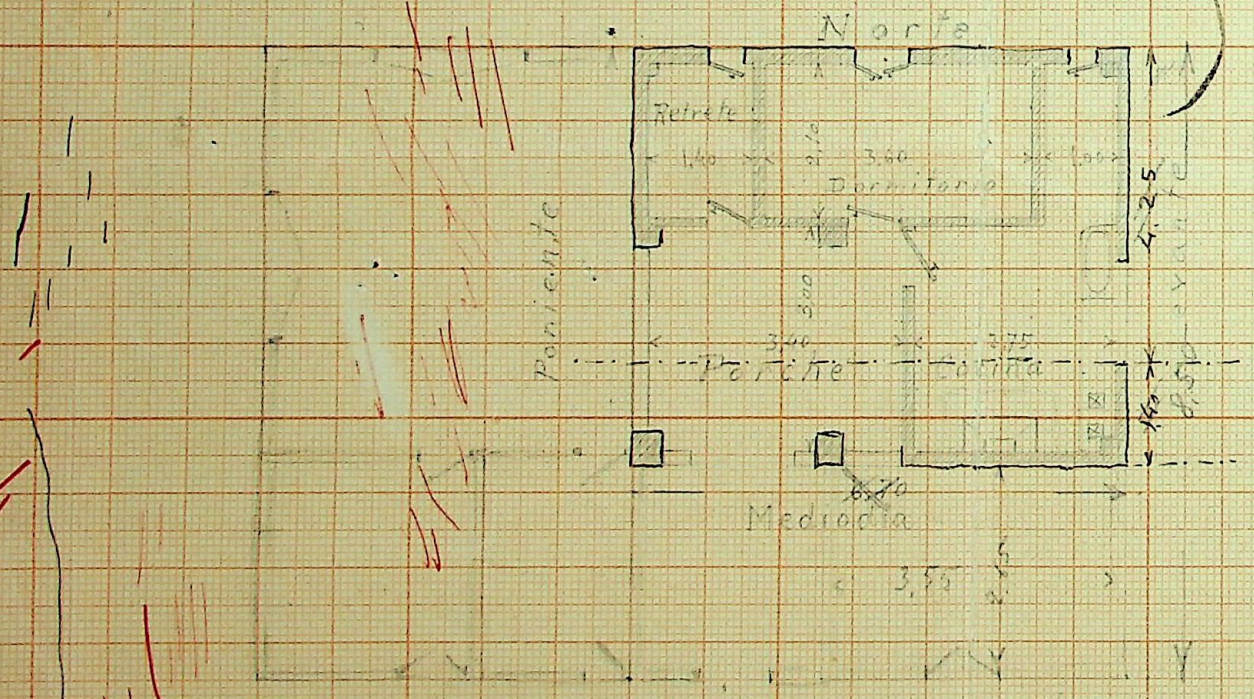 Norte
Retrete
1.40
2.10
3.60
1.00
Dormitorio
Poniente
Levante
4.25
3.00
3.40
3.75
Porche
Cocina
1.40
8.50
6.70
Mediodía
3.55